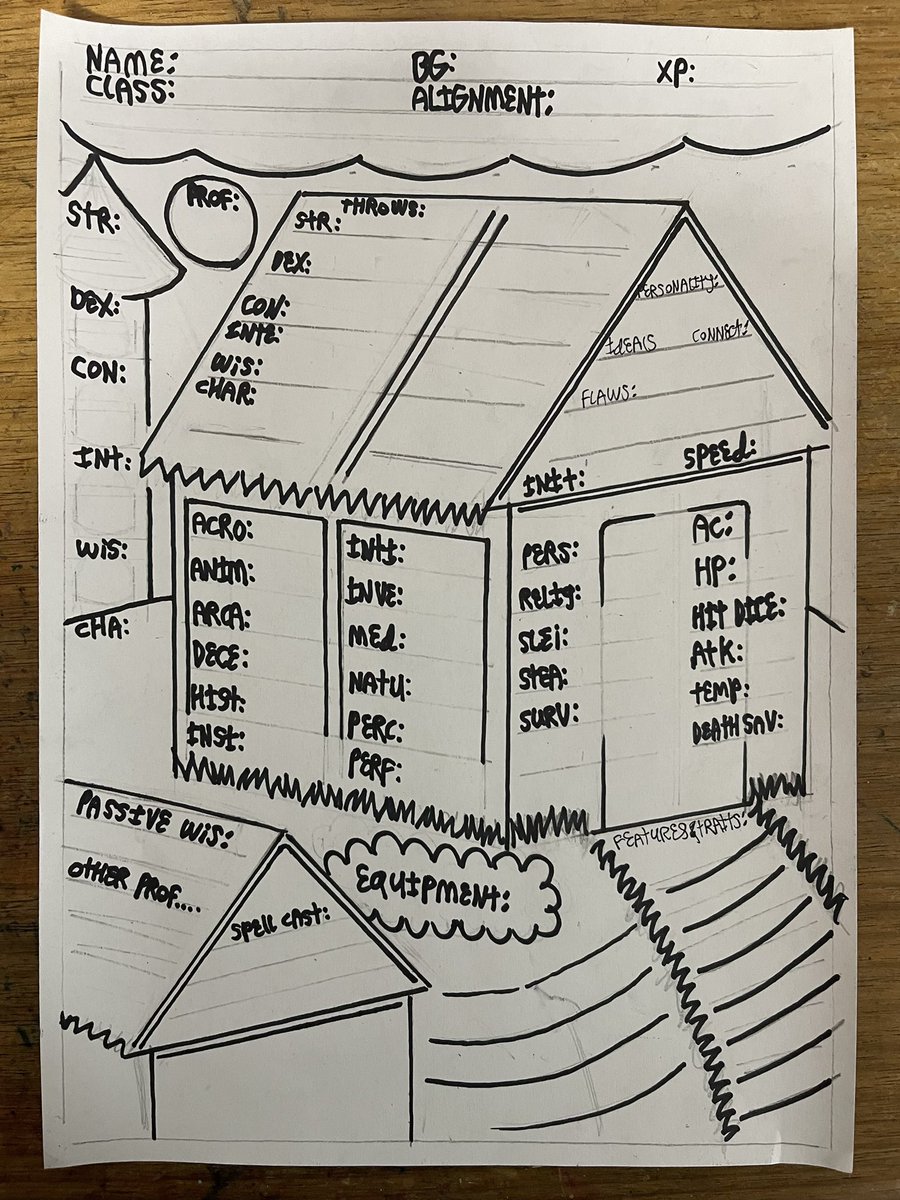 NAME:
BG:
XP:
CLASS:
ALIGNMENT:
PROF:
THROWS:
STR:
DEX:
CON:
INTE:
WIS:
CHAR:
STR:
DEX:
CON:
INT:
WIS:
CHA:
PERSONALITY:
IDEALS
CONNECT:
FLAWS:
INIT:
SPEED:
ACRO:
ANIM:
ARCA:
DECE:
HIST:
INSI:
INTI:
INVE:
MED:
NATU:
PERC:
PERF:
PERS:
RELIG:
SLEI:
STEA:
SURV:
AC:
HP:
HIT DICE:
ATK:
TEMP:
DEATH SAV:
PASSIVE WIS:
OTHER PROF....
SPELL CAST:
EQUIPMENT:
FEATURES & TRAITS: